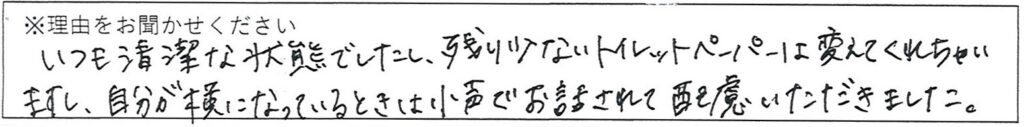 ※理由をお聞かせください
いつも清潔な状態でしたし、残り少ないトイレットペーパーは変えてくれちゃい
ますし、自分が横になっているときは小声でお話されて配慮いただきました。